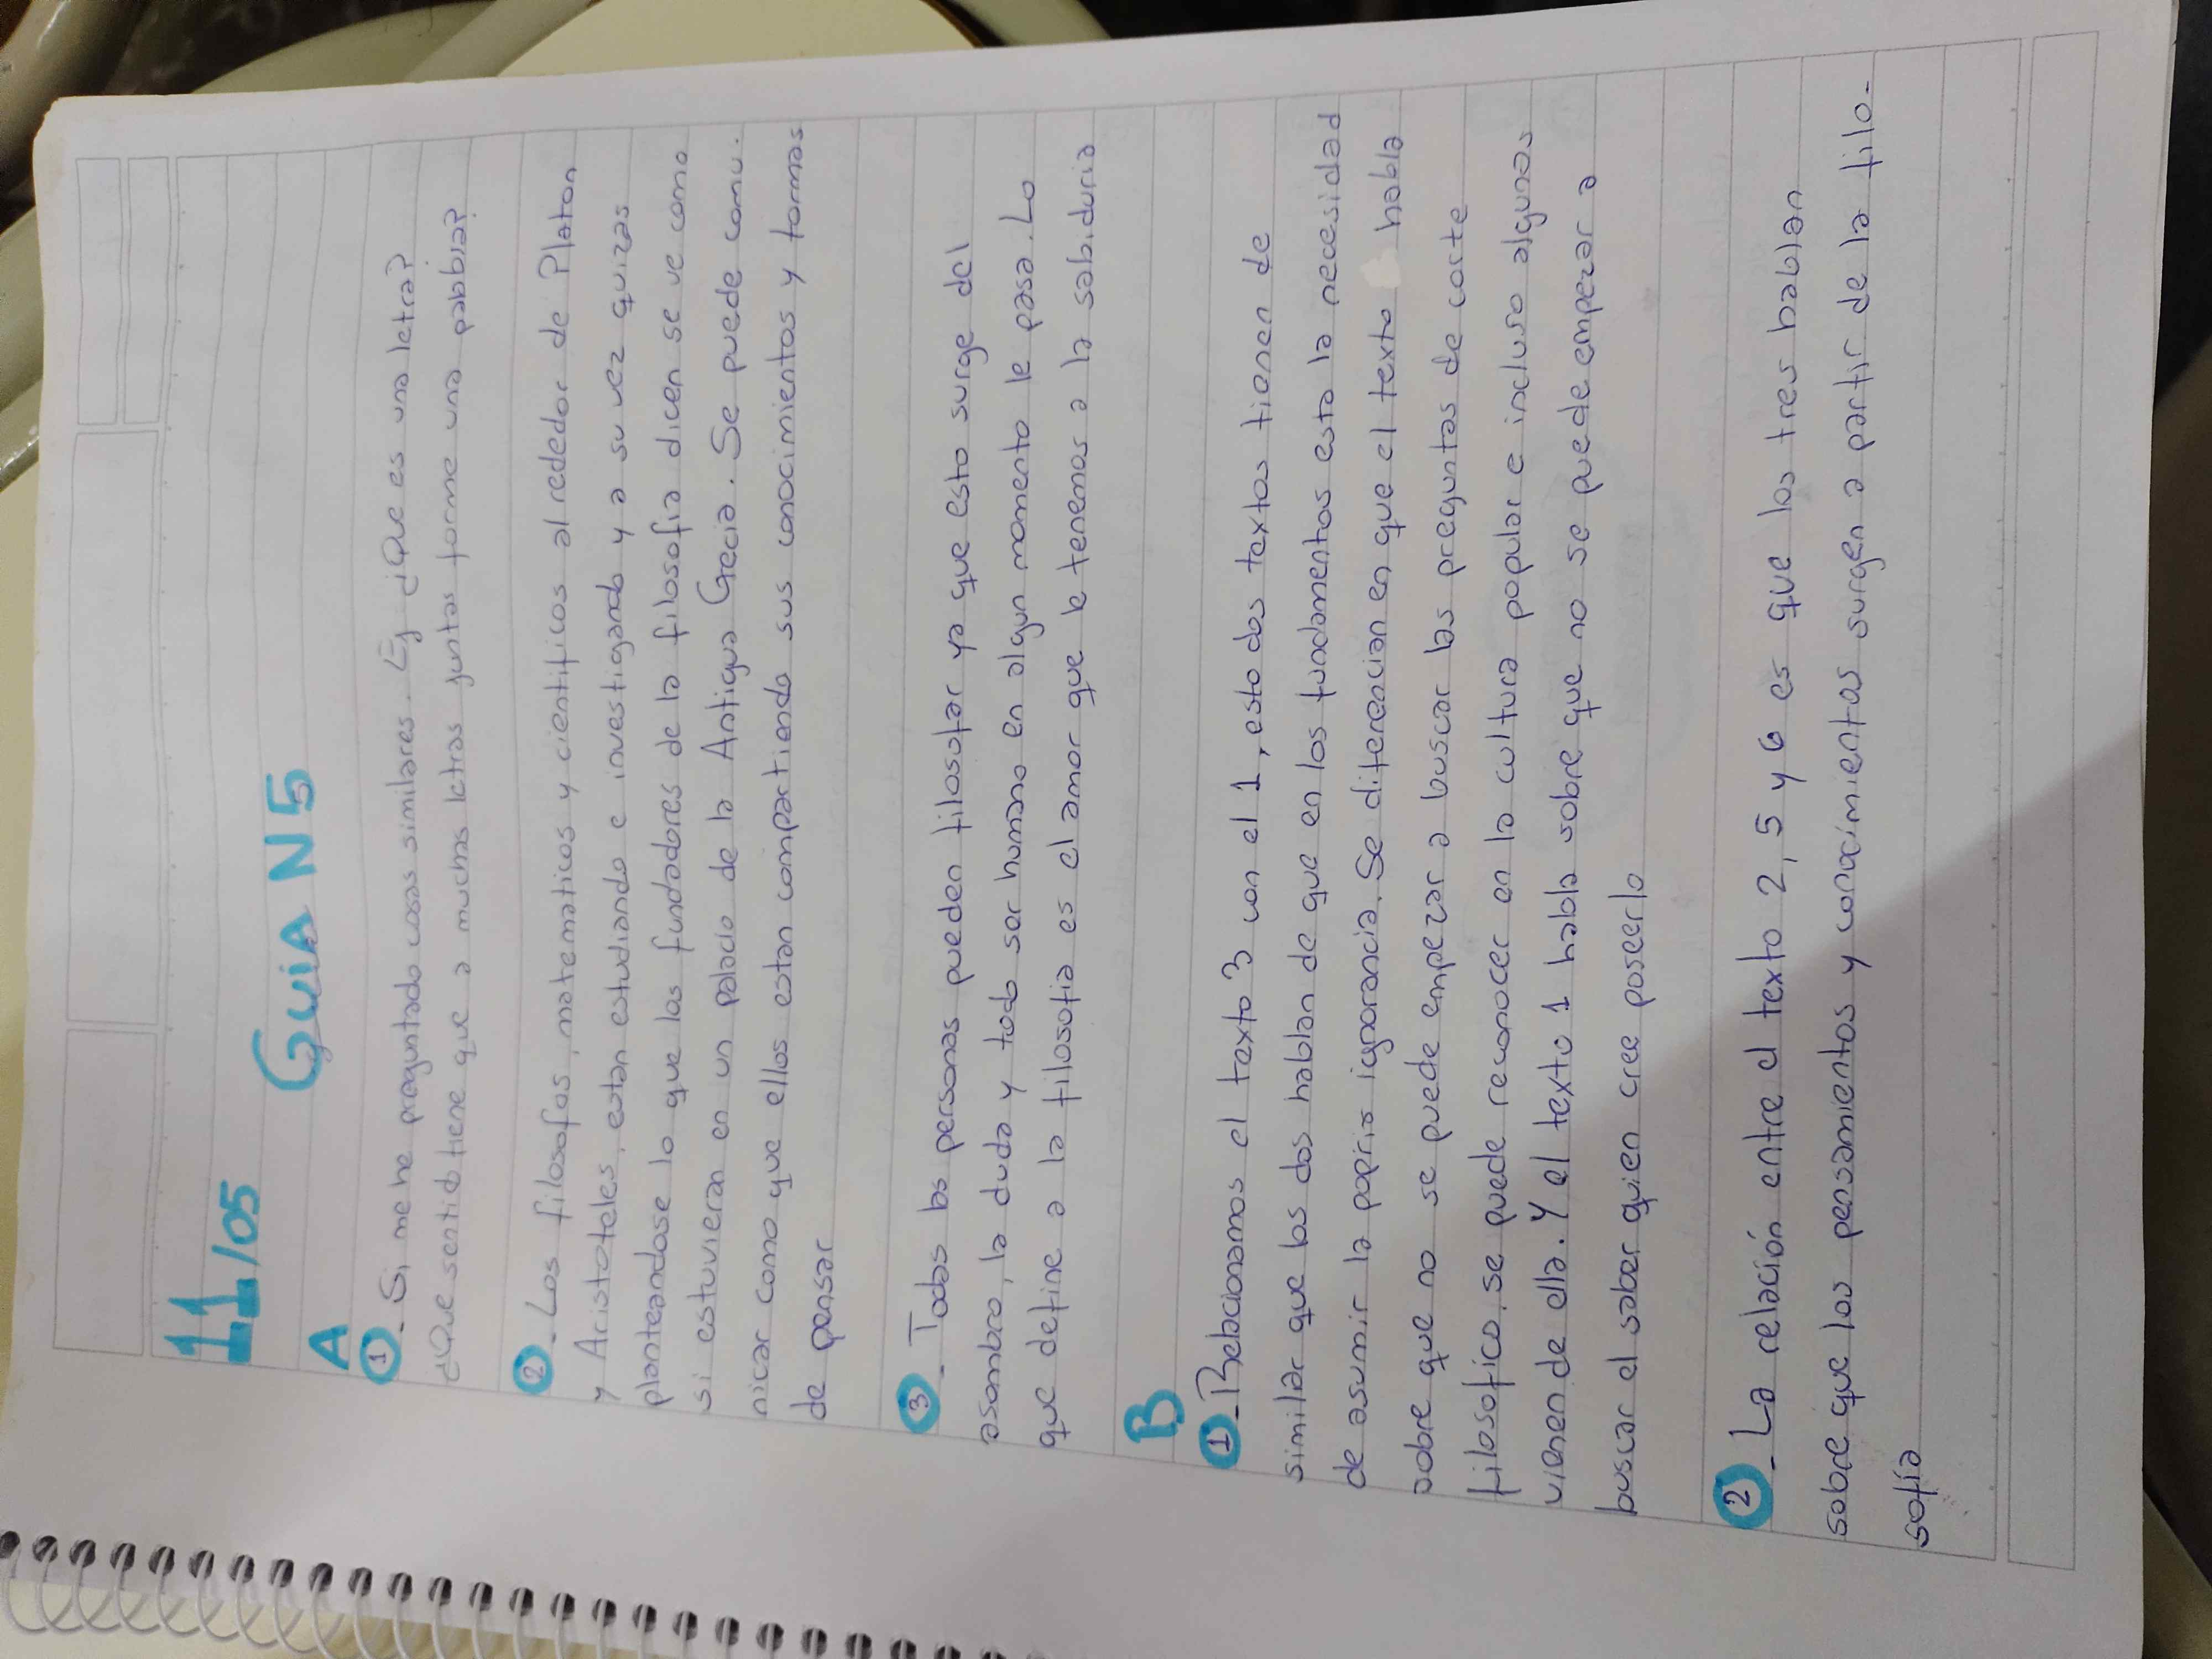 11/05
GUIA N5
A
1- Si, me he preguntado cosas similares. Ej ¿Que es una letra?
¿Que sentido tiene que a muchas letras juntas forme una palabra?
2- Los filosofos, matematicos y cientificos al rededor de Platon
y Aristoteles, estan estudiando e investigando y a su vez quizas
planteandose lo que los fundadores de la filosofia dicen se ve como
si estuvieran en un palacio de la Antigua Grecia. Se puede comu-
nicar como que ellos estan compartiendo sus conocimientos y formas
de pensar
3- Todas las personas pueden filosofar ya que esto surge del
asombro, la duda y todo ser humano en algun momento le pasa. Lo
que define a la filosofia es el amor que le tenemos a la sabiduria
B
1- Relacionamos el texto 3 con el 1, esto dos textos tienen de
similar que los dos hablan de que en los fundamentos esta la necesidad
de asumir la papria ignorancia. Se diferencian en que el texto habla
sobre que no se puede empezar a buscar las preguntas de corte
filosofico, se puede reconocer en la cultura popular e incluso algunas
vienen de ella. Y el texto 1 habla sobre que no se puede empezar a
buscar el saber quien cree poseerlo
2- La relación entre el texto 2, 5 y 6 es que los tres hablan
sobre que los pensamientos y conocimientos surgen a partir de la filo-
sofía